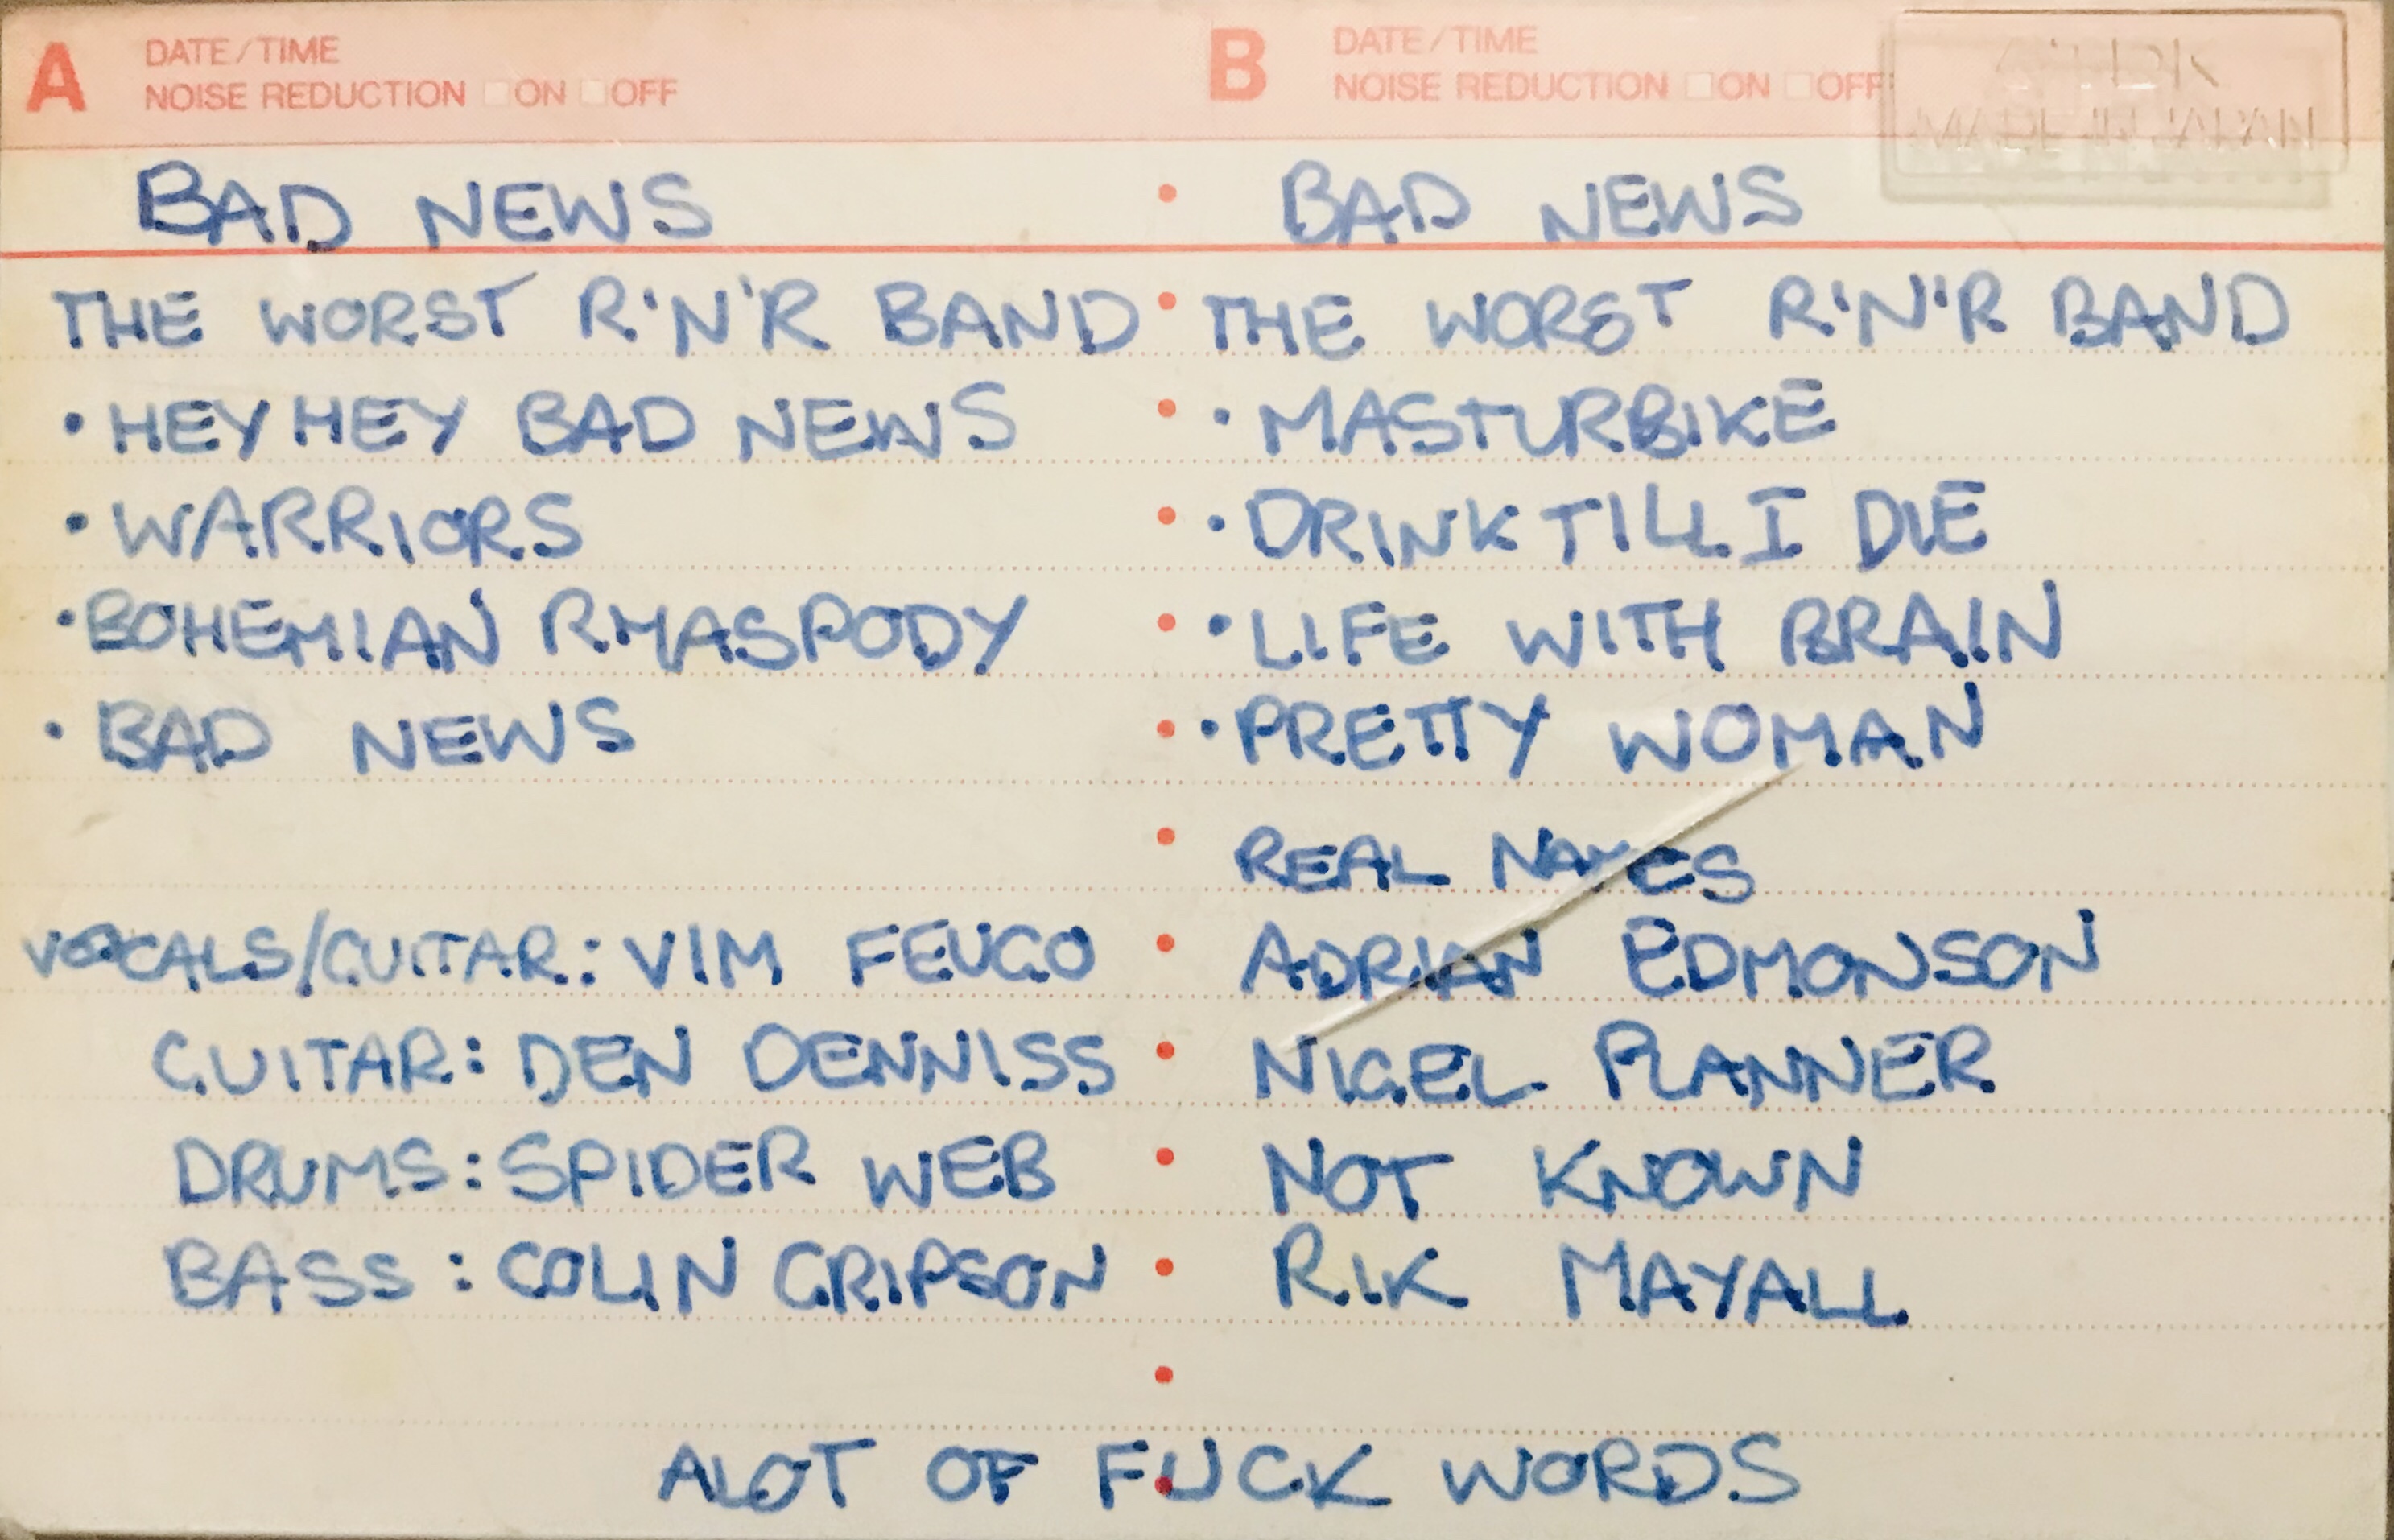 A DATE/TIME
NOISE REDUCTION ON OFF
BAD NEWS
THE WORST R'N'R BAND
• HEY HEY BAD NEWS
• WARRIORS
• BOHEMIAN RHASPODY
• BAD NEWS
VOCALS/GUITAR: VIM FEUGO
GUITAR: DEN DENNISS
DRUMS: SPIDER WEB
BASS: COLIN GRIPSON
B DATE/TIME
NOISE REDUCTION ON OFF
MADE IN JAPAN
BAD NEWS
THE WORST R'N'R BAND
• MASTURBIKE
• DRINK TILL I DIE
• LIFE WITH BRAIN
• PRETTY WOMAN
REAL NAMES
ADRIAN EDMONSON
NIGEL PLANNER
NOT KNOWN
RIK MAYALL
ALOT OF FUCK WORDS